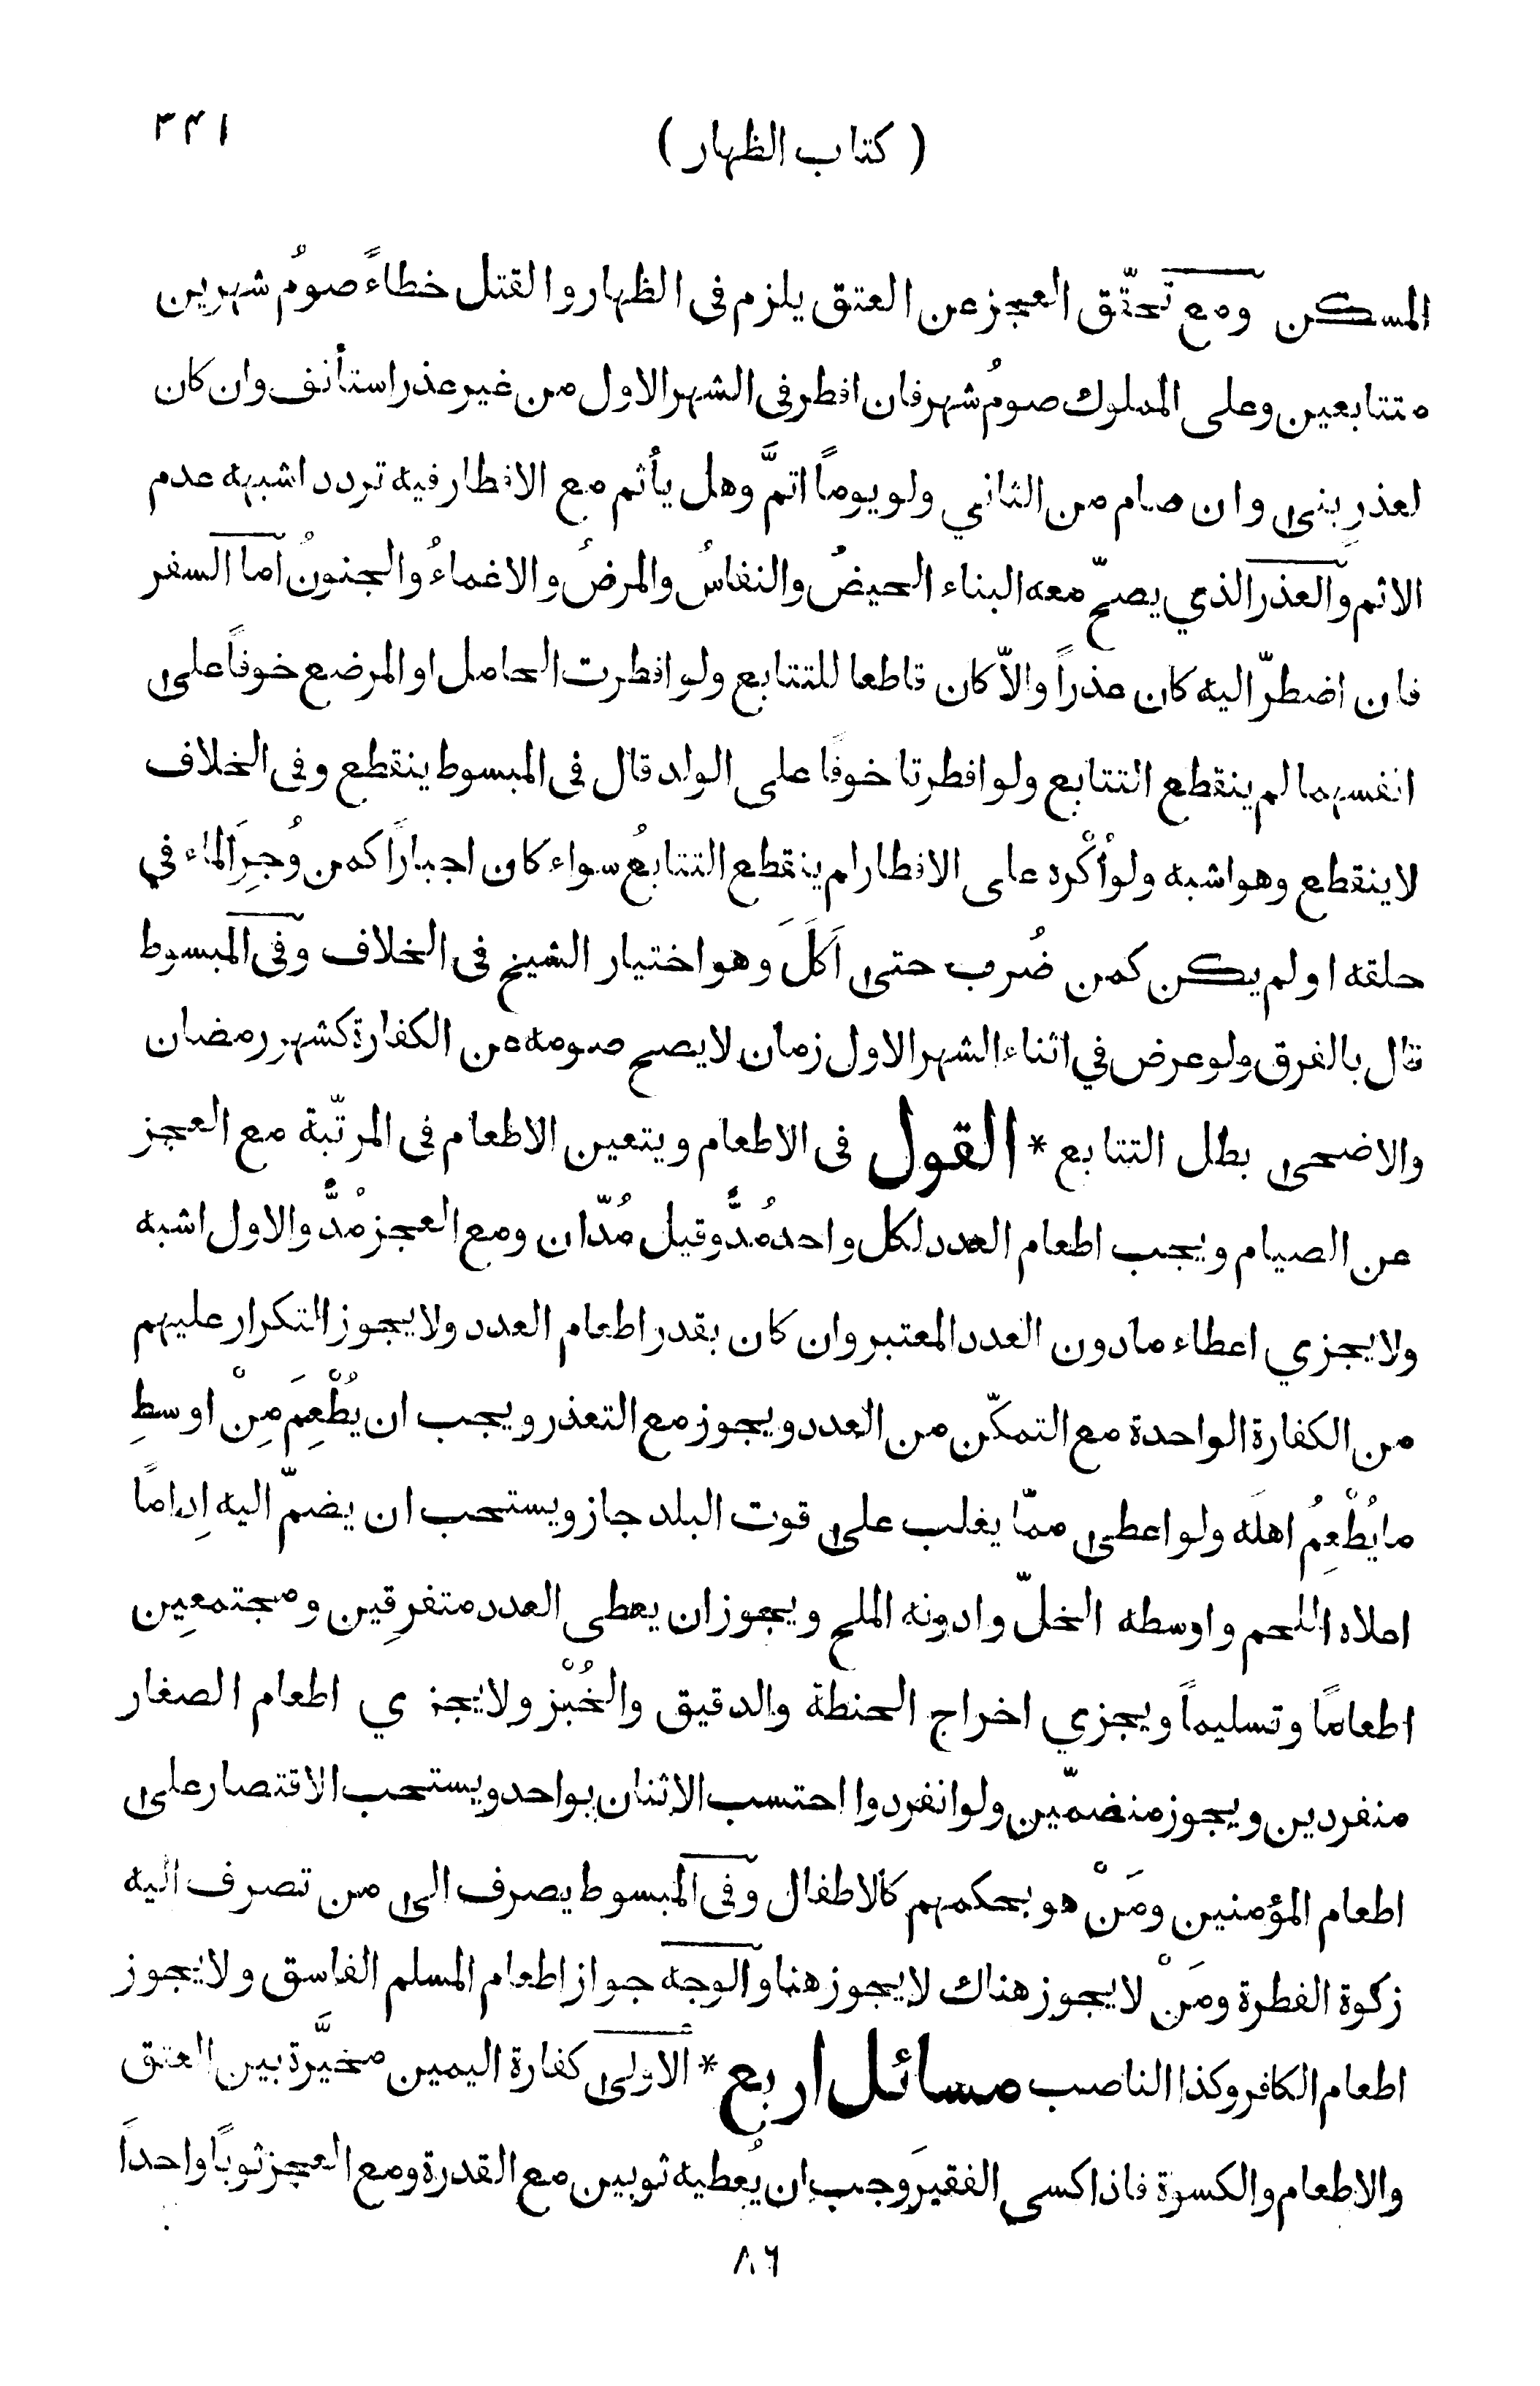 ( كتاب الظهار )
٣٤١
المسكن ومع تحقّق العجز عن العتق يلزم فى الظهار والقتل خطاءً صومُ شهرين
متتابعين وعلى المملوك صومُ شهر فان افطر فى الشهر الاول من غير عذر استأنف وان كان
لعذرٍ بنى وان صام من الثاني ولو يوماً اتمَّ وهل يأثم مع الافطار فيه تردد اشبهه عدم
الاثم والعذر الذي يصحّ معه البناء الحيضُ والنفاسُ والمرضُ والاغماءُ والجنونُ اما السفر
فان اضطرّ اليه كان عذراً والاّ كان قاطعا للتتابع ولو افطرت الحامل او المرضع خوفاً على
انفسهما لم ينقطع التتابع ولو افطرتا خوفًا على الولد قال فى المبسوط ينقطع وفى الخلاف
لا ينقطع وهو اشبه ولو أُكْره على الافطار لم ينقطع التتابعُ سواء كان اجبارًا كمن وُجِرَ الماء في
حلقه او لم يكن كمن ضُرب حتى اَكَلَ وهو اختيار الشيخ فى الخلاف وفى المبسوط
قال بالفرق ولو عرض في اثناء الشهر الاول زمان لا يصح صومه من الكفارة كشهر رمضان
والاضحى بطل التتابع * القول فى الاطعام ويتعين الاطعام فى المرتّبة مع العجز
عن الصيام ويجب اطعام العدد لكل واحد مُدٌّ وقيل مُدّان ومع العجز مُدٌّ والاول اشبه
ولا يجزي اعطاء مادون العدد المعتبر وان كان بقدر اطعام العدد ولا يجوز التكرار عليهم
من الكفارة الواحدة مع التمكّن من العدد ويجوز مع التعذر ويجب ان يُطْعِمَ مِنْ اوسطِ
ما يُطْعِمُ اهلَه ولو اعطى ممّا يغلب على قوت البلد جاز ويستحب ان يضمّ اليه اِدامًا
اعلاه اللحم واوسطه الخلّ وادونه الملح ويجوز ان يعطى العدد متفرقِين ومجتمعِين
اطعامًا وتسليماً ويجزي اخراج الحنطة والدقيق والخُبْز ولا يجزي اطعام الصغار
منفردين ويجوز منضمّين ولو انفردوا احتسب الاثنان بواحد ويستحب الاقتصار على
اطعام المؤمنين ومَنْ هو بحكمهم كالاطفال وفى المبسوط يصرف الى من تصرف اليه
زكوة الفطرة ومَنْ لا يجوز هناك لا يجوز هنا والوجه جواز اطعام المسلم الفاسق ولا يجوز
اطعام الكافر وكذا الناصب مسائل اربع * الأولى كفارة اليمين مخيَّرة بين العتق
والاطعام والكسوة فاذا كسى الفقيرَ وجب ان يُعطيه ثوبين مع القدرة ومع العجز ثوبًا واحداً
٨٦